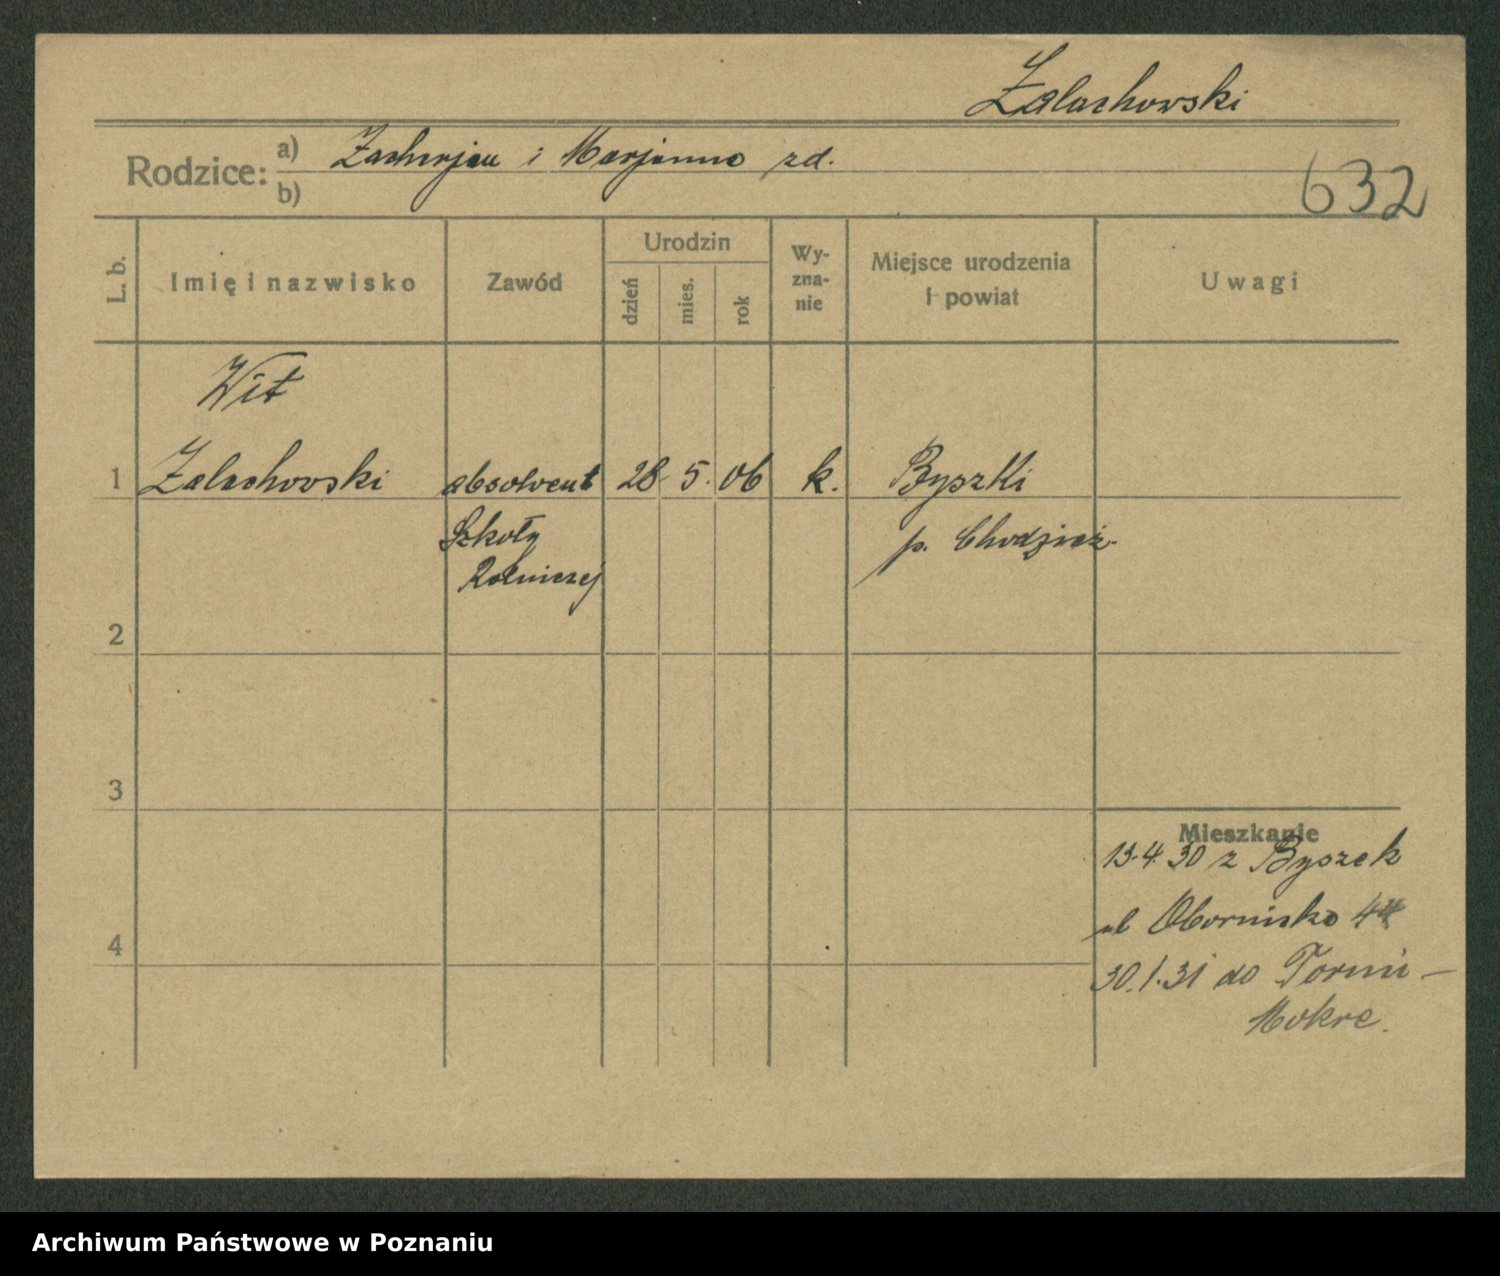 Zalachowski
Rodzice: a) Zacharjau i Marjanna zd.
b)
632
L. b.
Imię i nazwisko
Zawód
Urodzin
dzień
mies.
rok
Wy-
zna-
nie
Miejsce urodzenia
i powiat
Uwagi
Wit
1 Zalachowski absolwent 28. 5. 06 k. Byszki
Szkoły p. Chodzież.
Rolniczej
2
3
Mieszkanie
13.4.30 z Byszek
ul Obornicka
4
30.1.31 do Toruń –
Mokre.
Archiwum Państwowe w Poznaniu